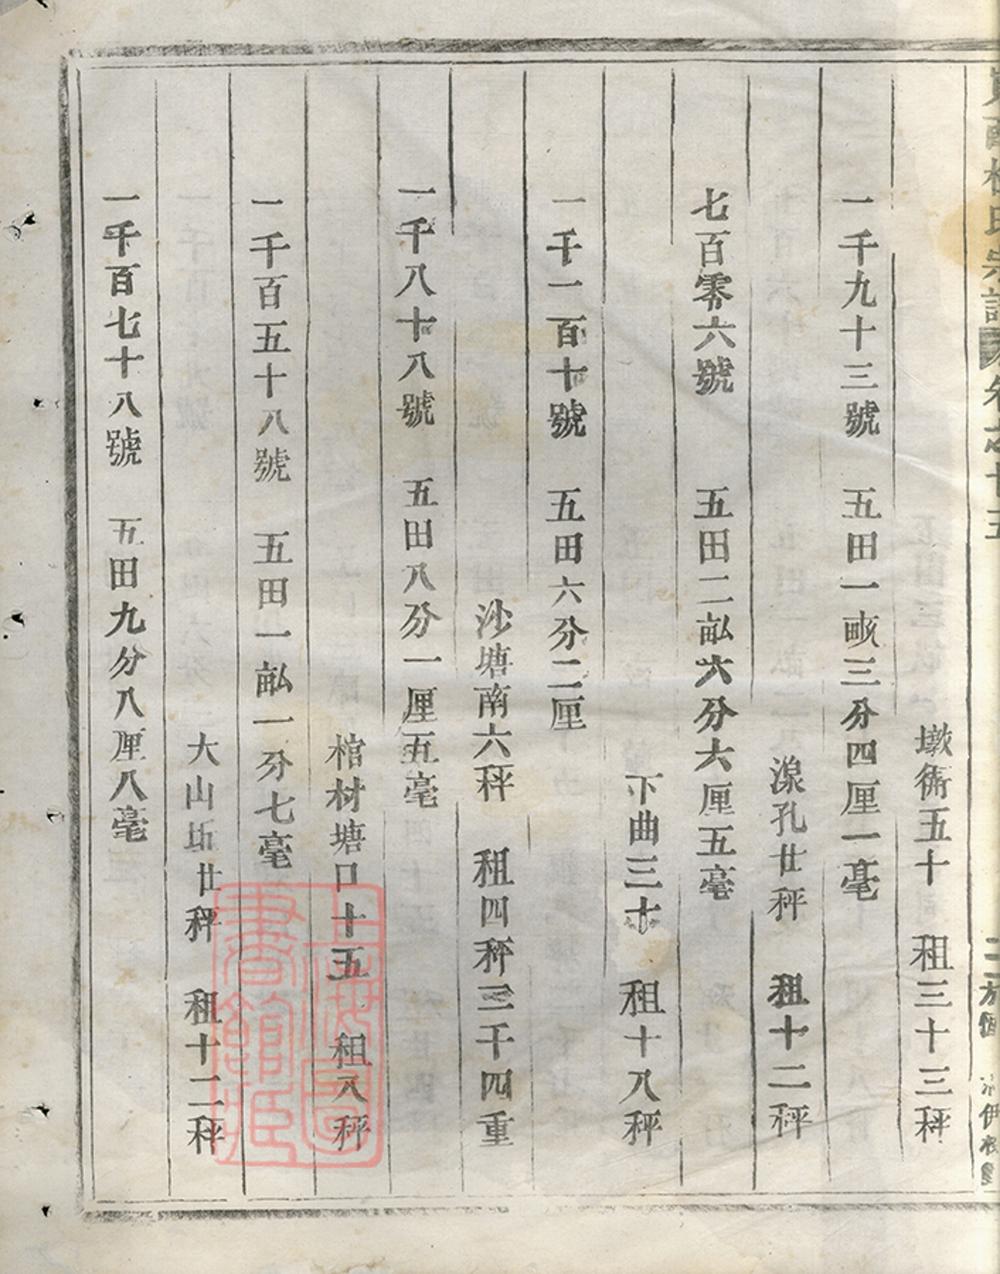 氏宗譜
卷之十五
墩衕五十　租三十三秤
一千九十三號　五田一畝三分四厘一毫
湶孔廿秤　租十二秤
七百零六號　五田二畝六分六厘五毫
下曲三十　租十八秤
一千一百十號　五田六分二厘
沙塘南六秤　租四秤三千四重
一千八十八號　五田八分一厘五毫
棺材塘口十五　租八秤
一千百五十八號　五田一畝一分七毫
大山坵廿秤　租十二秤
一千百七十八號　五田九分八厘八毫
上海圖書館藏